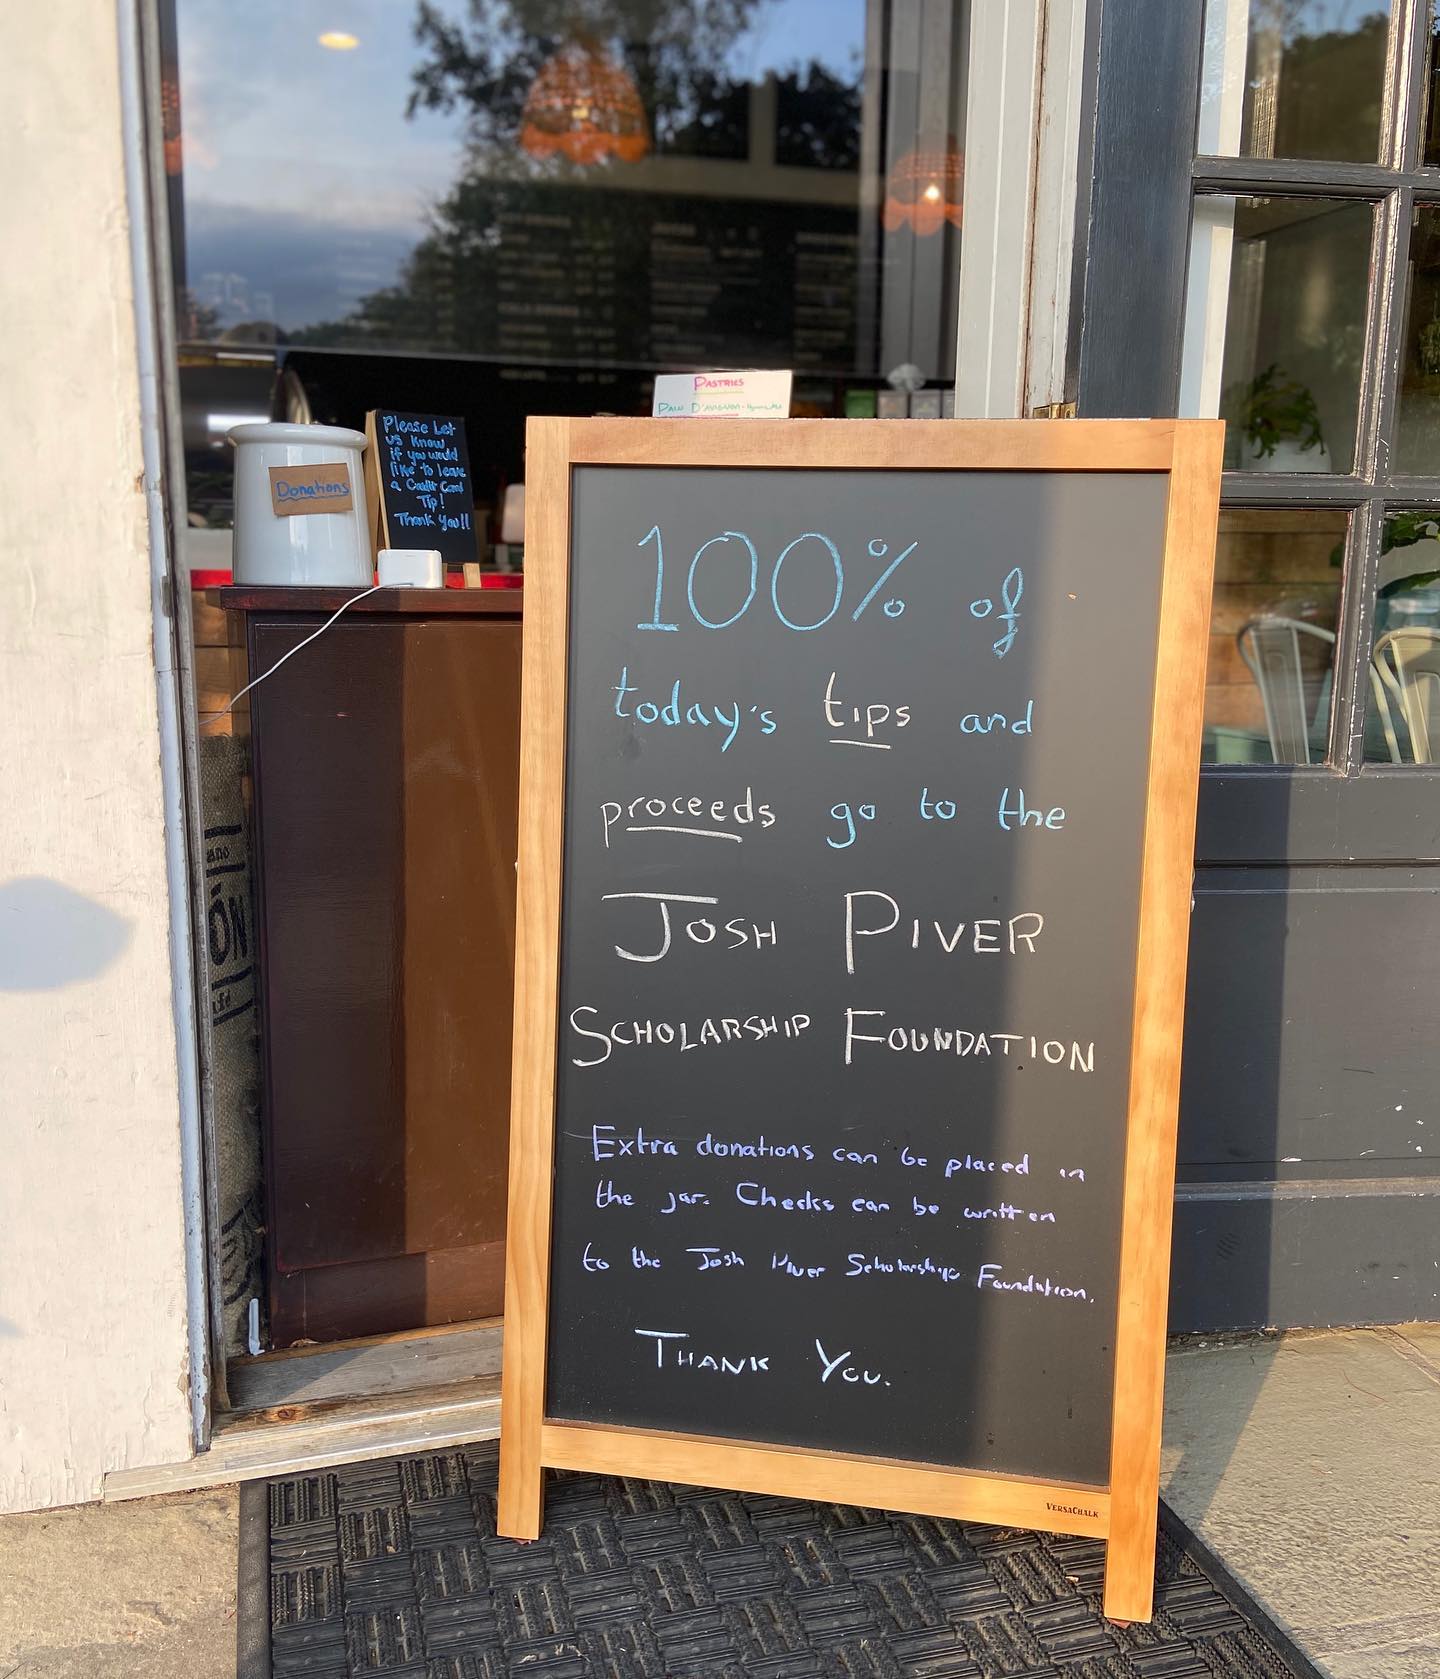 PASTRIES
PAIN D'AVIGNON
Donations
Please Let
us know
if you would
like to leave
a Credit Card
Tip!
Thank You!!
100% of
today's tips and
proceeds go to the
JOSH PIVER
SCHOLARSHIP FOUNDATION
Extra donations can be placed in
the jar. Checks can be written
to the Josh Piver Scholarship Foundation.
THANK YOU.
VERSACHALK